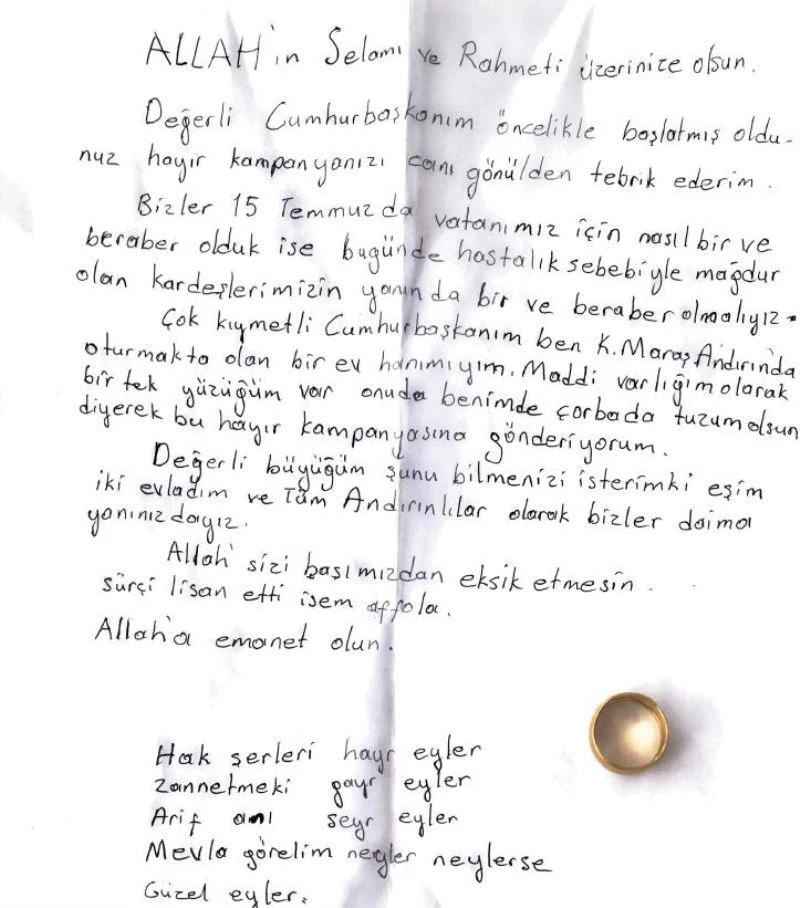 ALLAH'ın Selamı ve Rahmeti üzerinize olsun.
Değerli Cumhurbaşkanım öncelikle başlatmış oldu-
nuz hayır kampanyanızı canı gönülden tebrik ederim.
Bizler 15 Temmuzda vatanımız için nasıl bir ve
beraber olduk ise bugünde hastalık sebebiyle mağdur
olan kardeşlerimizin yanında bir ve beraber olmalıyız.
Çok kıymetli Cumhurbaşkanım ben K.Maraş Andırında
oturmakta olan bir ev hanımıyım. Maddi varlığım olarak
bir tek yüzüğüm var onuda benimde çorbada tuzum olsun
diyerek bu hayır kampanyasına gönderiyorum.
Değerli büyüğüm şunu bilmenizi isterimki eşim
iki evladım ve Tüm Andırınlılar olarak bizler daima
yanınızdayız.
Allah' sizi başımızdan eksik etmesin.
sürçi lisan etti isem affola.
Allah'a emanet olun.
Hak şerleri hayr eyler
Zannetmeki gayr eyler
Arif anı seyr eyler
Mevla görelim neyler neylerse
Güzel eyler.